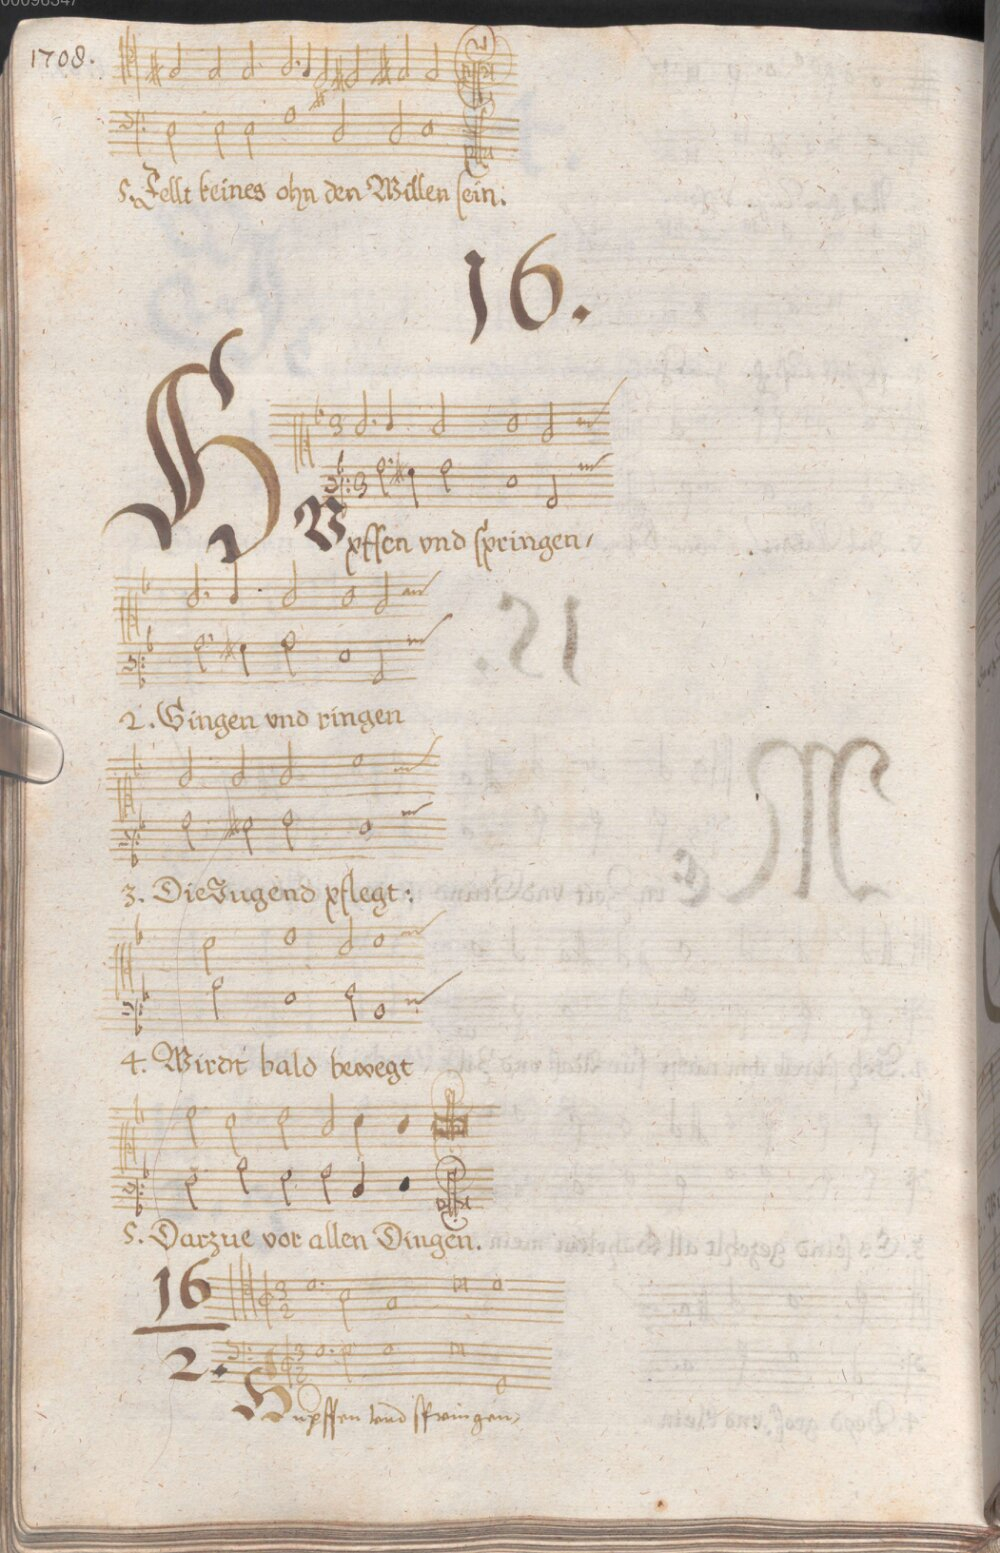 1708.
5. Fellt keines ohn den Willen sein:
16.
HVpffen vnd springen/
2. Singen vnd ringen
3. Die Jugend pflegt:
4. Wirdt bald bewegt
5. Darzue vor allen Dingen.
16
2.
Hupffen vnd springen,